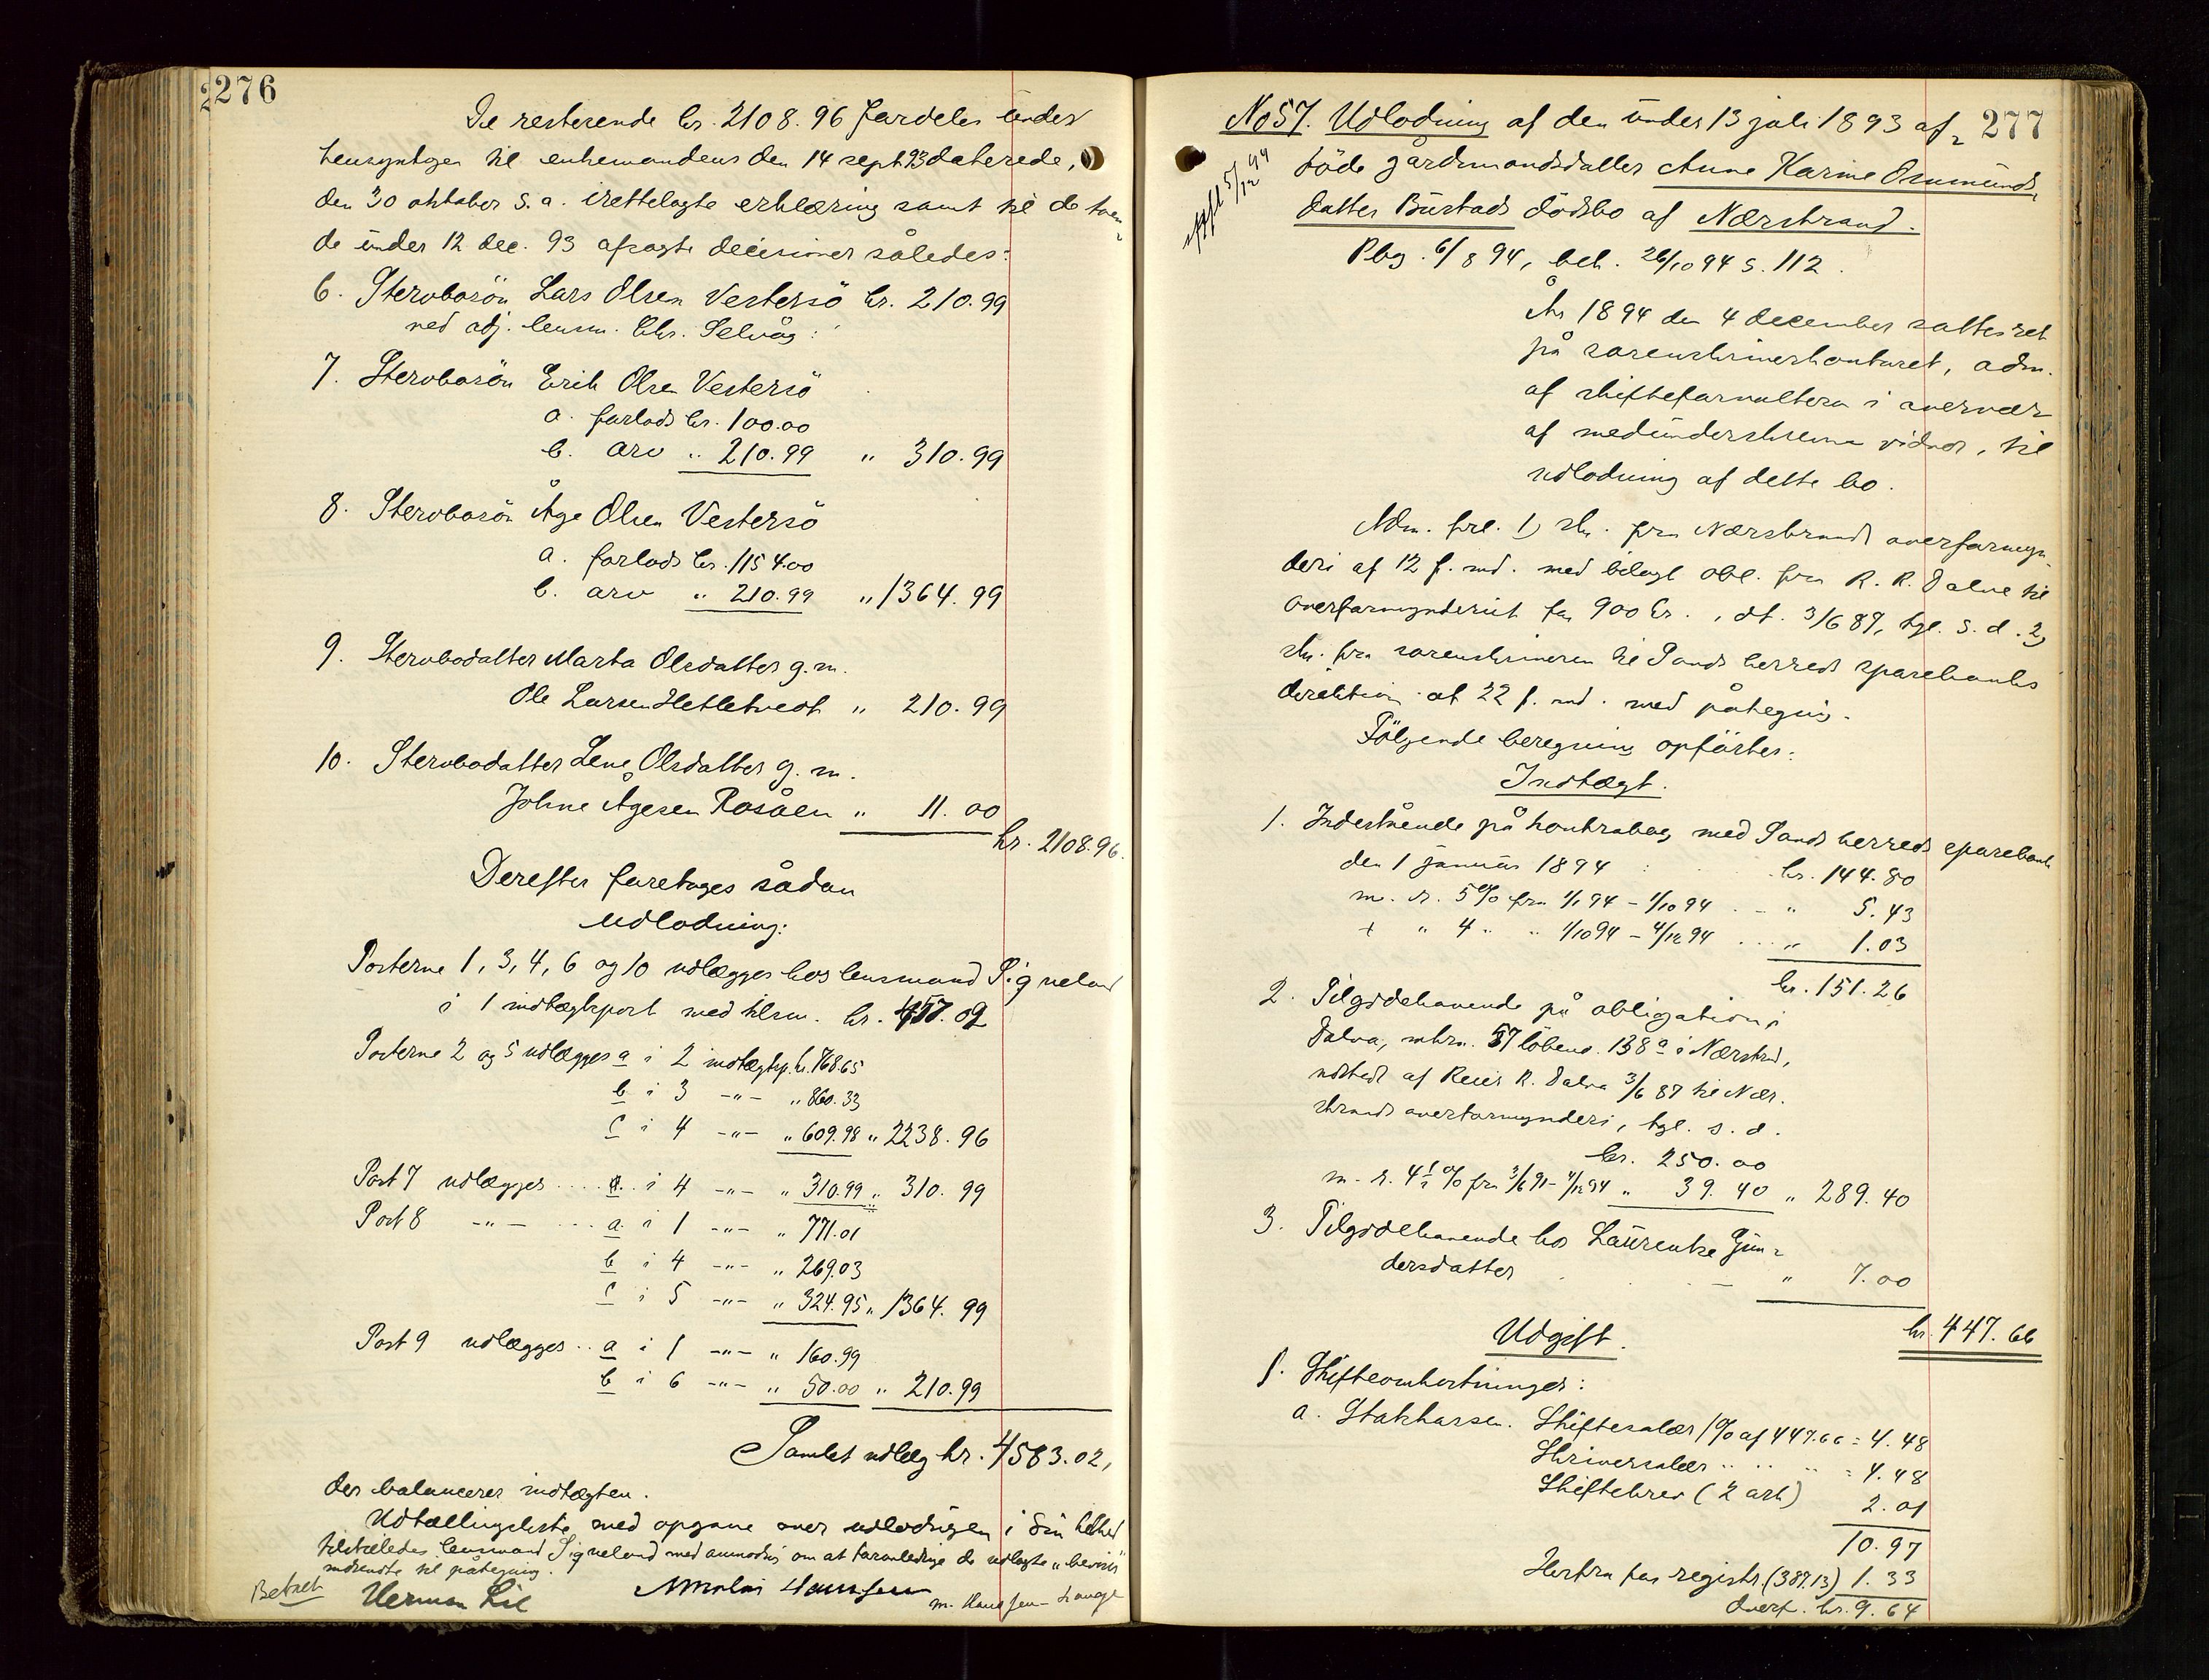 276
De resterende kr. 2108.96 fordeles under
hensyntagen til enkemandens den 14 sept 93 daterede,
den 30 oktober s.a. irettelagte erklæring samt til de tven-
de under 12 dec. 93 afsagte decisioner således:
6. Stervbosön Lars Olsen Vestersö kr. 210.99
ved adj. lensm. Chr. Selvåg:
7. Stervbosön Erik Olsen Vestersö
a. forlods kr. 100.00
b. arv " 210.99 " 310.99
8. Stervbosön Åge Olsen Vestersö
a. forlods kr. 1154.00
b. arv " 210.99 " 1364.99
9. Stervbodatter Marta Olsdatter g.m.
Ole Larsen Hetletvedt " 210.99
10. Stervbodatter Lene Olsdatter g.m.
Johne Ågesen Rosåen " 11.00
kr. 2108.96.
Derefter foretoges sådan
udlodning:
Posterne 1, 3, 4, 6 og 10 udlægges hos lensmand Signeland
i 1 indtægtspost med tilsm. kr. 457.09
Posterne 2 og 5 udlægges a i 2 indtægtsp. kr. 768.65
b i 3 -"- " 860.33
c i 4 -"- " 609.98 " 2238.96
Post 7 udlægges .... a. i 4 -"- " 310.99 " 310.99
Post 8 -"- ... a i 1 -"- " 771.01
b i 4 -"- " 269.03
c i 5 -"- " 324.95 " 1364.99
Post 9 udlægges .. a i 1 -"- " 160.99
b i 6 -"- " 50.00 " 210.99
Samlet udlæg kr. 4583.02,
der balancerer indtægten.
Udtællingsliste med opgave over udlodningen i sin helhed
tilstilledes lensmand Signeland med anmodning om at foranledige de udlagte "beviser"
indsendte til påtegning.
Betræt Herman Lie Nikolai Hanssen m. Hanssen
277
No 57. Udlodning af den under 13 juli 1893 af-
töde gårdmandsdatter Anne Karine Osmunds-
datter Bustads dödsbo af Nærstrand.
5/12 94
Pbg. 6/8 94, beh. 26/10 94 s. 112.
År 1894 den 4 december sattes ret
på sorenskriverkontoret, adm.
af skifteforvalteren i overvær
af medunderskrevne vidner, til
udlodning af dette bo.
Adm. frel. 1) skr. fra Nærstrands overformyn-
deri af 12 f. md. med bilagt obl. fra R. R. Dalva til
overformynderiet for 900 kr., dt. 3/6 87, tgl. s.d. 2)
skr. fra sorenskriveren til Sands herreds sparebanks
direktion af 22 f. md. med påtegning.
Fölgende beregning opförtes:
Indtægt.
1. Indestående på kontrabog med Sands herreds sparebank
den 1 januar 1894 : kr. 144.80
m. r. 5% fra 1/1 94 - 1/10 94 . - " 5.43
+ " 4 " " 1/10 94 - 4/12 94 ... " 1.03
kr. 151.26
2. Tilgodehavende på obligation i
Dalva, mtrn. 57 löben. 138a i Nærstrd,
udstedt af Reier R. Dalva 3/6 87 til Nær-
strands overformynderi, tgl. s.d.
kr. 250.00
m. r. 4½% fra 3/6 91 - 4/12 94 " 39.40 " 289.40
3. Tilgodehavende hos Laurentze Gun-
dersdatter - " 7.00
kr. 447.66
Udgift.
1. Skifteomkostninger:
a. Statskassen. Skiftesalær 1% af 447.66 = 4.48
Skriversalær " " " = 4.48
Skiftebrev (2 ark) 2.01
10.97
Herfra for registr. (387.13) 1.33
Overf. kr. 9.64